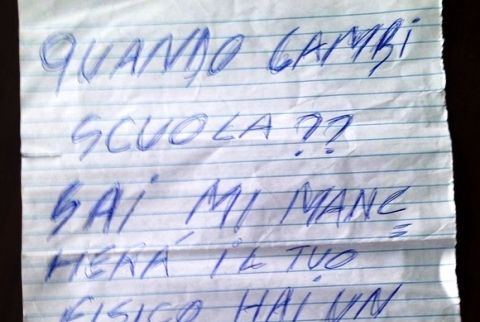 QUANDO CAMBi
SCUOLA??
SAi MI MANC
HERÁ iL TUO
FISICO HAI UN